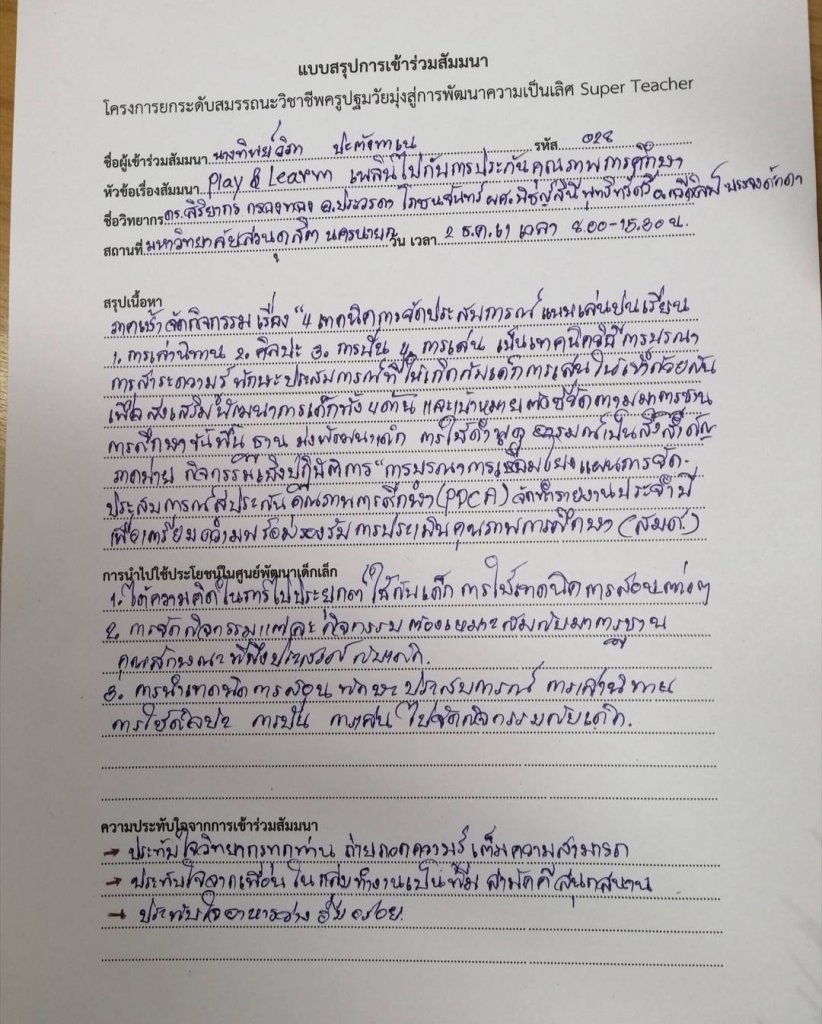 แบบสรุปการเข้าร่วมสัมมนา
โครงการยกระดับสมรรถนะวิชาชีพครูปฐมวัยมุ่งสู่การพัฒนาความเป็นเลิศ Super Teacher
ชื่อผู้เข้าร่วมสัมมนา นางทิพย์วิภา รหัส 028
หัวข้อเรื่องสัมมนา Play & Learn เพลินไปกับการประกันคุณภาพการศึกษา
ชื่อวิทยากร ดร.สิริยากร กองทอง อ.ประวรดา โภชนจันทร์ ผศ.
สถานที่ มหาวิทยาลัยสวนดุสิต นครนายก วัน เวลา 2 ธ.ค.61 เวลา 8.00-15.30 น.
สรุปเนื้อหา
ภาคเช้า จัดกิจกรรม เรื่อง "4 เทคนิคการจัดประสบการณ์ แบบเล่นปนเรียน
1. การเล่านิทาน 2. ศิลปะ 3. การปั้น 4. การเล่น เป็นเทคนิควิธีการบูรณา
การสาระความรู้ ทักษะประสบการณ์ที่ให้เกิดกับเด็ก การเล่นให้เข้าด้วยกัน
เพื่อส่งเสริมพัฒนาการเด็กทั้ง 4 ด้าน และเป้าหมายตัวชี้วัดตามมาตรฐาน
การศึกษาขั้นพื้นฐาน มุ่งพัฒนาเด็ก การใช้คำพูด อารมณ์เป็นสิ่งสำคัญ
ภาคบ่าย กิจกรรมเชิงปฏิบัติการ "การบูรณาการเชื่อมโยงแผนการจัด-
ประสบการณ์สู่ประกันคุณภาพการศึกษา (PDCA) จัดทำรายงานประจำปี
เพื่อเตรียมความพร้อมรองรับการประเมินคุณภาพการศึกษา (สมศ.)
การนำไปใช้ประโยชน์ในศูนย์พัฒนาเด็กเล็ก
1. ได้ความคิดในการไปประยุกต์ใช้กับเด็ก การใช้เทคนิคการสอนต่างๆ
2. การจัดกิจกรรมแต่ละกิจกรรม ต้องเหมาะสมกับมาตรฐาน
คุณลักษณะที่พึงประสงค์กับเด็ก.
3. การนำเทคนิคการสอน ทักษะ ประสบการณ์ การเล่านิทาน
การใช้ศิลปะ การปั้น การเล่น ไปจัดกิจกรรมกับเด็ก.
ความประทับใจจากการเข้าร่วมสัมมนา
→ ประทับใจวิทยากรทุกท่าน ถ่ายทอดความรู้เต็มความสามารถ
→ ประทับใจจากเพื่อนในกลุ่มทำงานเป็นทีม สามัคคีสนุกสนาน
→ ประทับใจอาหารว่าง อร่อย.